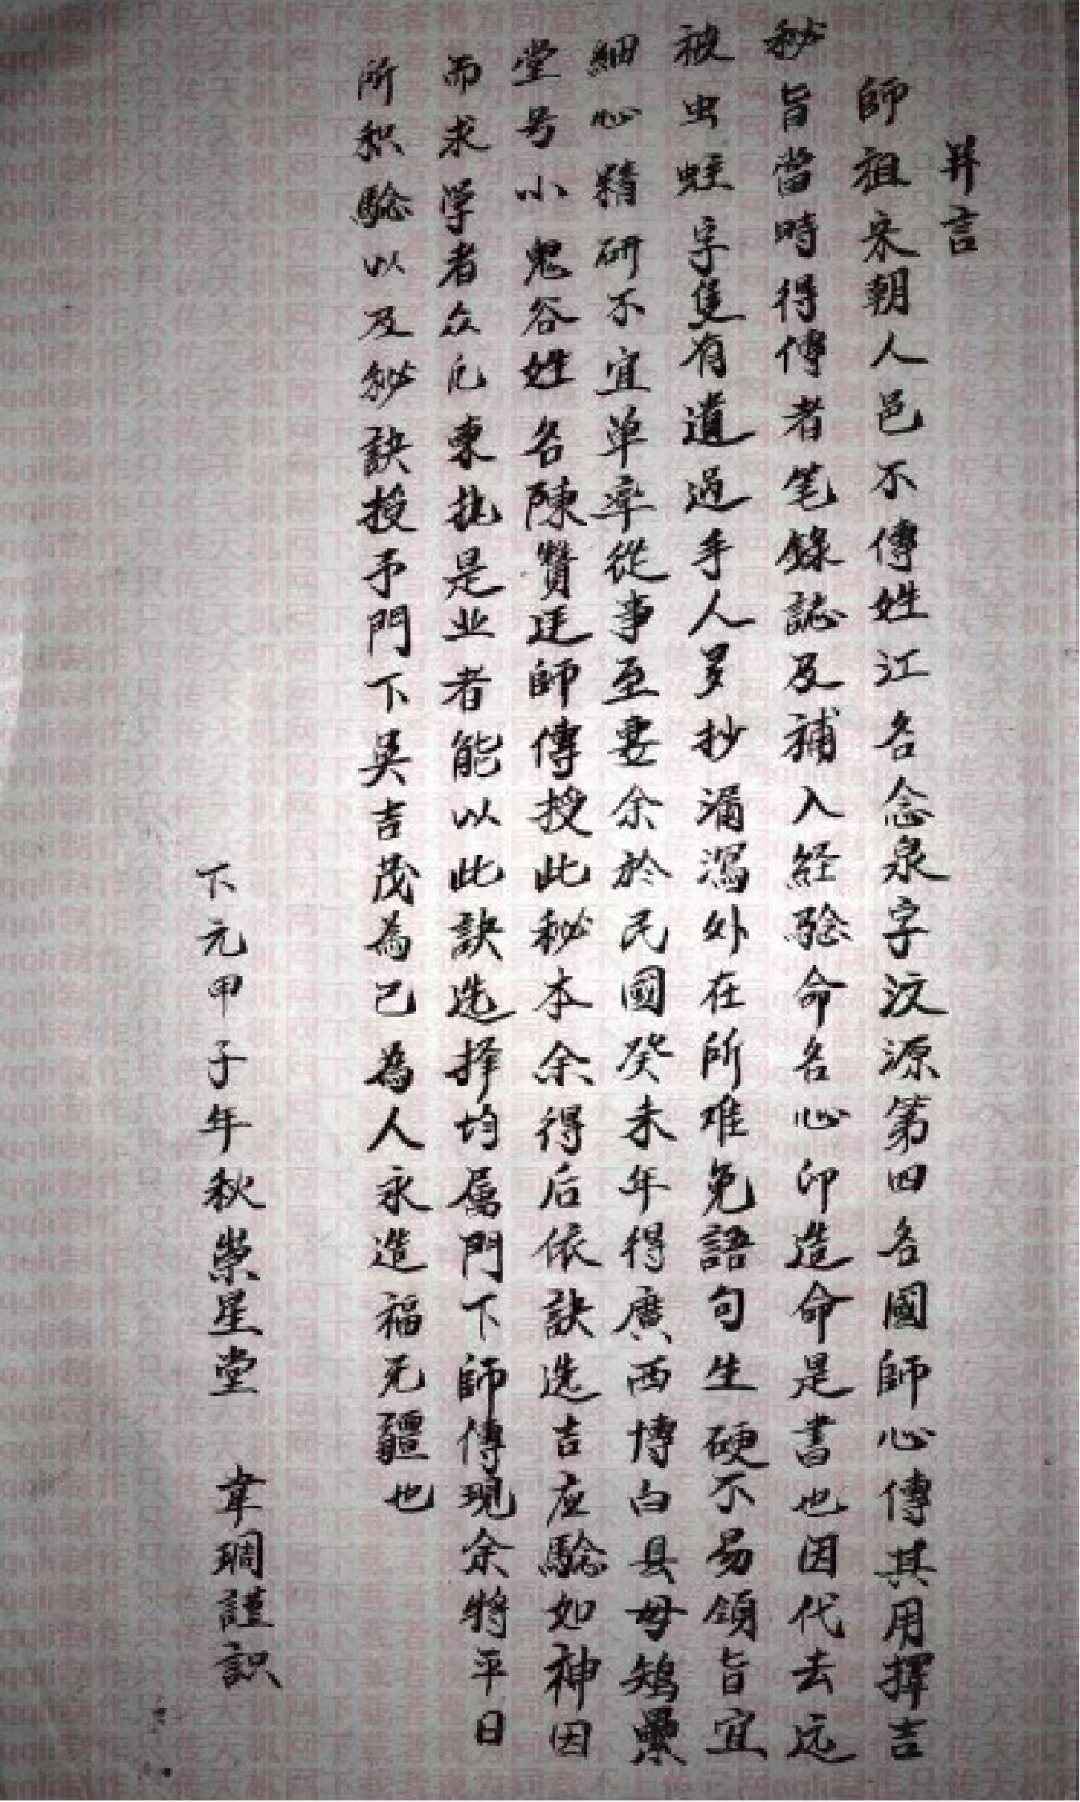 弁言
師祖宋朝人邑不傳姓江名念泉字汶源第四名國師心傳其用擇吉
秘旨當時得傳者笔錄誌及補入経驗命名心印造命是書也因代去远
被虫蛀字隻有遺过手人多抄漏瀉外在所难免語句生硬不易領旨宜
細心精研不宜单率從事至要余於民國癸未年得廣西博白县母鸡㙟
堂号小鬼谷姓名陳贊廷師傳授此秘本余得后依訣选吉应驗如神因
而求学者众凡东执是业者能以此訣选择均属門下師傳現余将平日
所积驗以及秘訣授予門下吳吉茂為己為人永造福无疆也
下元甲子年秋崇星堂 韋琱謹識